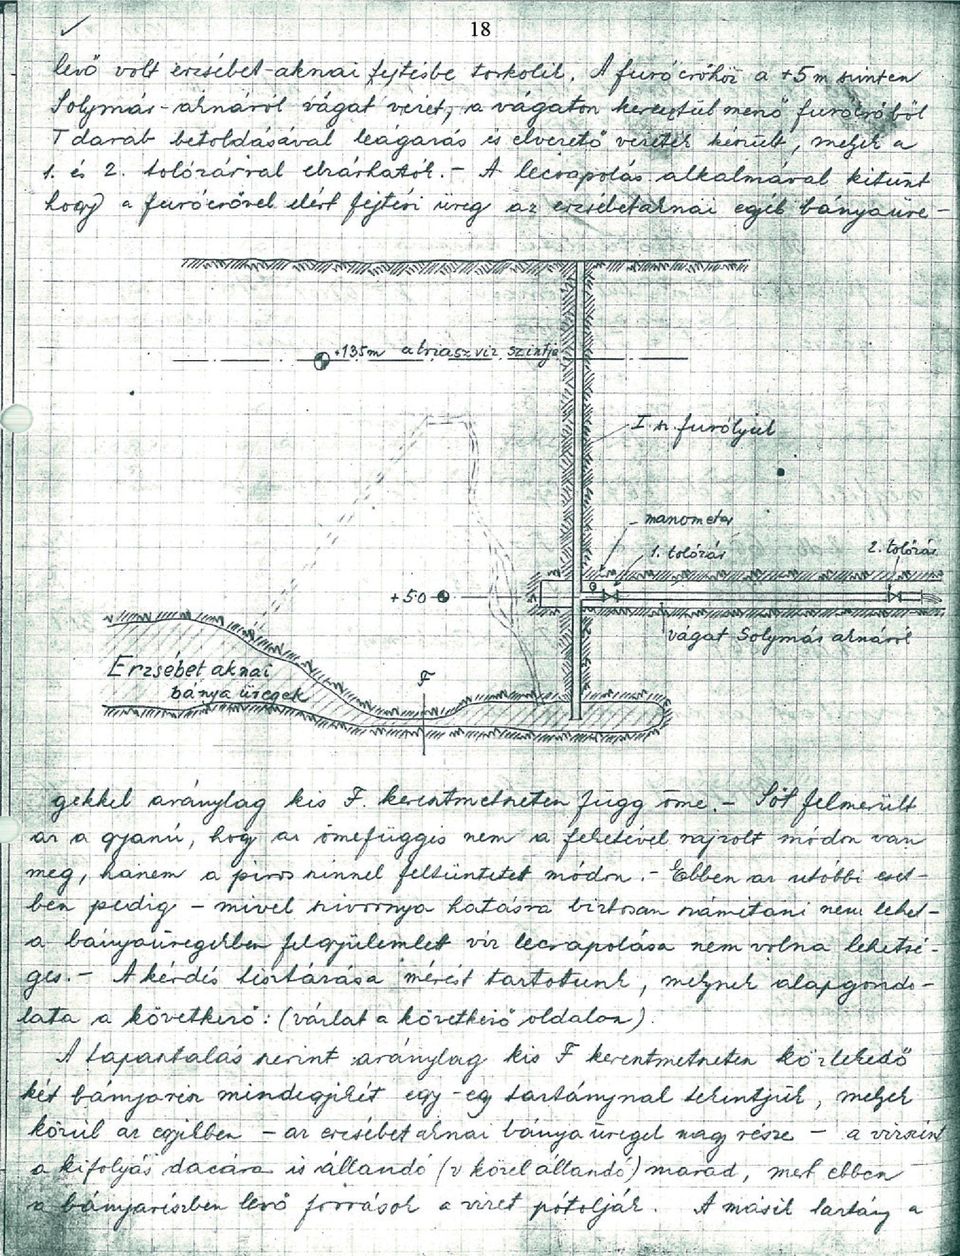 18
levő volt erzsébet-aknai fejtésbe torkolik. A furócsőhöz a +5 m szinten
Solymár-aknáról vágat vezet, a vágaton keresztül menő furócsőből
T darab betoldásával leágazás és elvezető vezeték készült, melyek a
1. és 2. tolózárral elzárhatók. - A lecsapolás alkalmával kitünt
hogy a furócsővel elért fejtési üreg az erzsébetaknai egyéb bányaüre-
+135m a triaszviz szintje
I sz. furólyuk
manometer
1. tolózár
2. tolózár
+50
vágat Solymár aknáról
Erzsébet aknai
bánya üregek
F
gekkel aránylag kis F. keresztmetszeten függ össze - Sőt felmerült
az a gyanú, hogy az összefüggés nem a feketével rajzolt módon van
meg, hanem a piros szinnel feltüntetett módon. - Ebben az utóbbi eset-
ben pedig - mivel szivornya hatásra biztosan számitani nem lehet -
a bányaüregekben felgyülemlett viz lecsapolása nem volna lehetsé-
ges. - A kérdés tisztázása mérést tartottunk, melynek alapgondo-
lata a következő: (vázlat a következő oldalon).
A tapasztalás szerint aránylag kis F keresztmetszeten közlekedő
két bányarész mindegyikét egy-egy tartánynak tekintjük, melyek
közül az egyikben - az erzsébetaknai bánya üregek nagy része - a vizszint
a kifolyás dacára is állandó (v közel állandó) marad, mert ebben
a bányarészben levő források a vizet pótolják. A másik tartány a